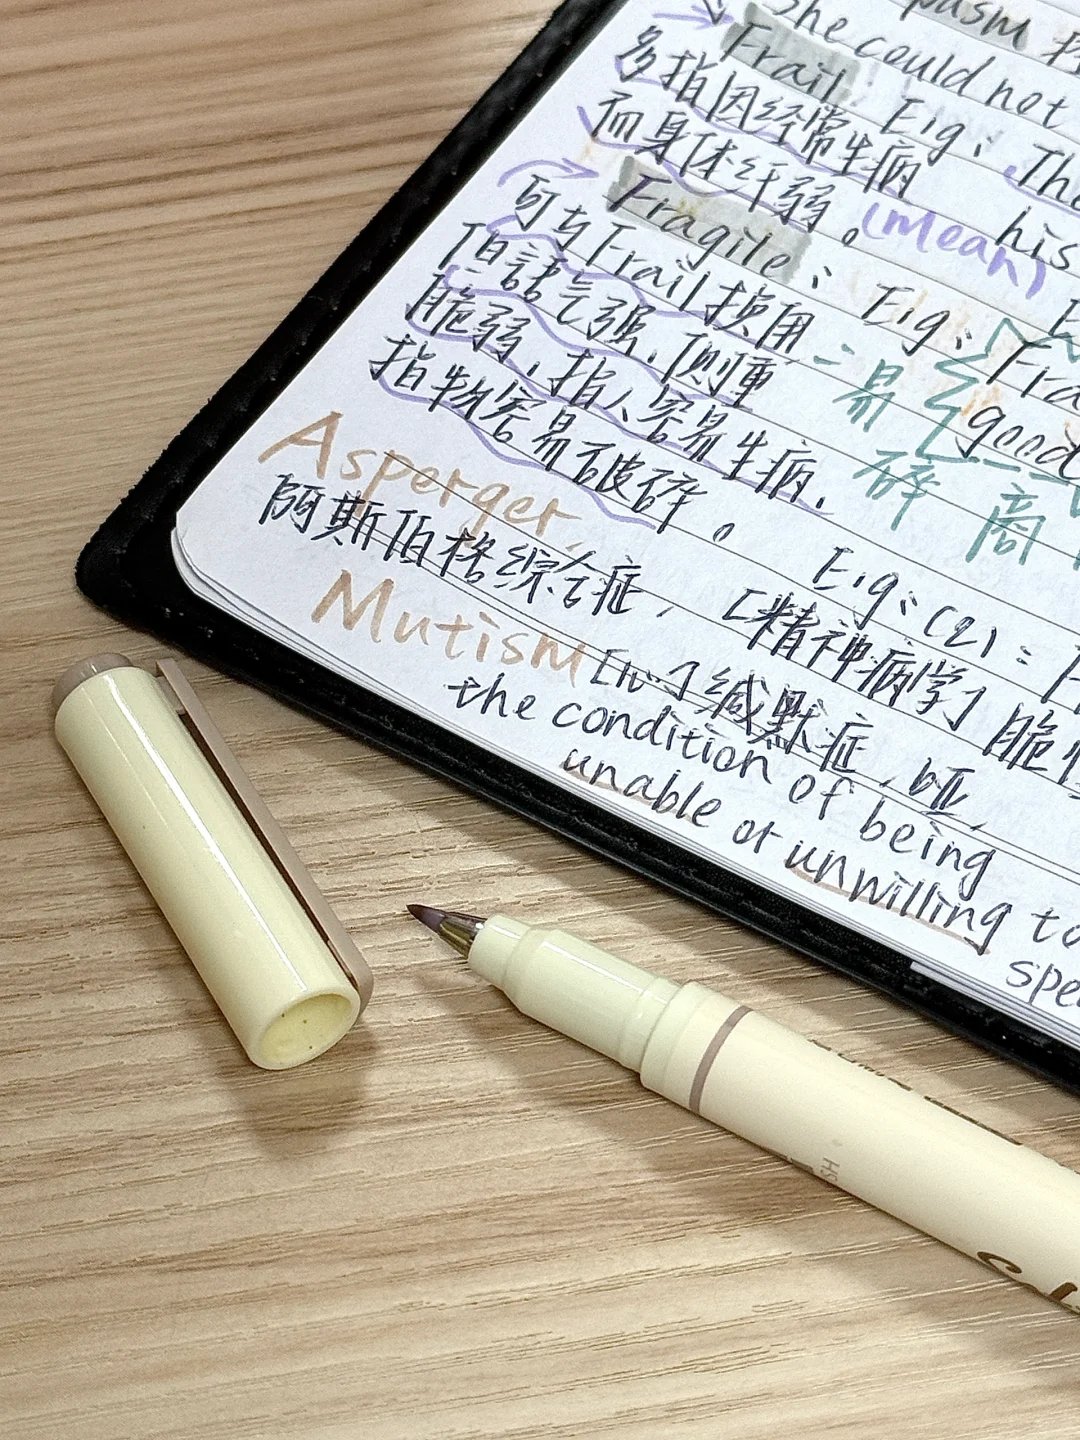 She could not
Frail: Eig: The
多指因经常生病
而身体纤弱。 his
(Mean)
Fragile: Eig: Fra
可与Frail换用 good
但語气强,侧重 易
脆弱,指人容易生病, 碎
指物容易破碎。 商
Asperger, Eig:(2):
阿斯伯格综合症,[精神病学] 脆
Mutism [ˈm 缄默症,哑,
the condition of being
unable or unwilling to
HS